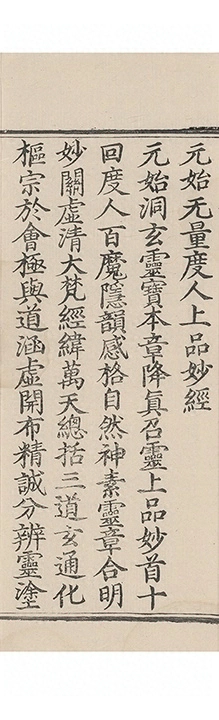 元始无量度人上品妙經
元始洞玄靈寶本章降真召靈上品妙首十
回度人百魔隱韻感格自然神素靈章合明
妙闗虛清大梵經緯萬天總括三道玄通化
樞宗於會極與道涵虛開布精誠分辨靈塗